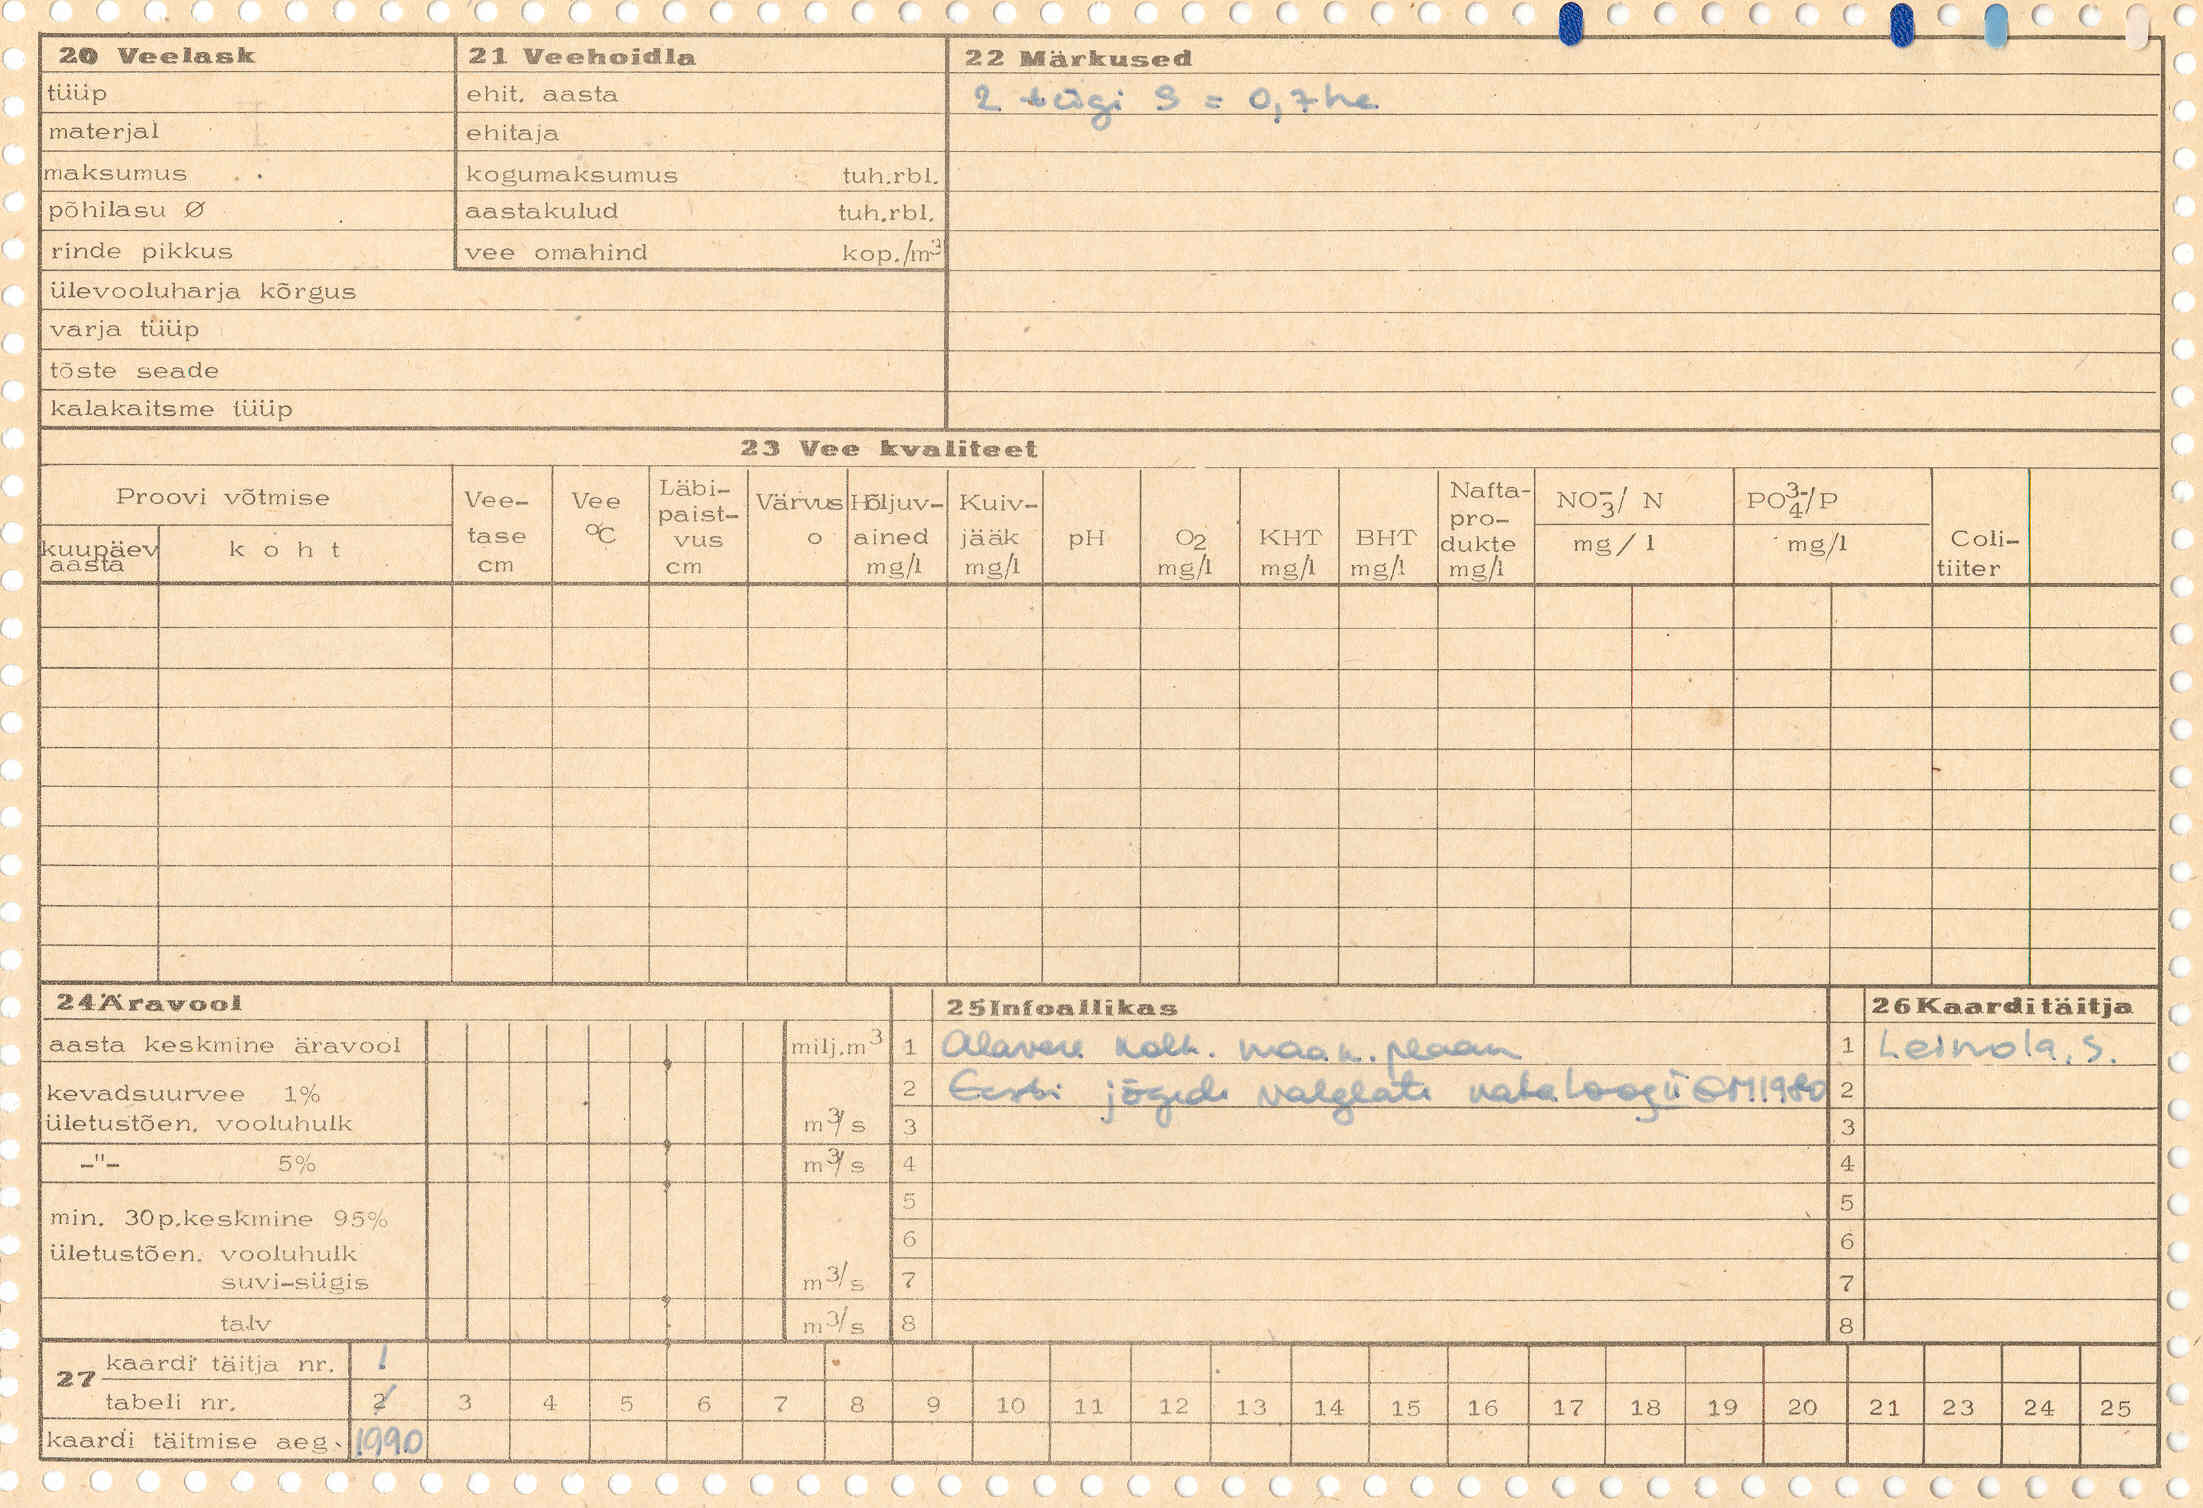 20 Veelask
tüüp
materjal
maksumus
põhilasu Ø
rinde pikkus
ülevooluharja kõrgus
varja tüüp
tõste seade
kalakaitsme tüüp
21 Veehoidla
ehit. aasta
ehitaja
kogumaksumus tuh.rbl.
aastakulud tuh.rbl.
vee omahind kop./m³
22 Märkused
2 tiigi S = 0,7 ha
23 Vee kvaliteet
Proovi võtmise
kuupäev aasta
koht
Vee-tase cm
Vee °C
Läbi-paist-vus cm
Värvus o
Hõljuv-ained mg/l
Kuiv-jääk mg/l
pH
O₂ mg/l
KHT mg/l
BHT mg/l
Nafta-pro-dukte mg/l
NO₃⁻/ N mg/l
PO₄³⁻/P mg/l
Coli-tiiter
24 Äravool
aasta keskmine äravool milj.m³
kevadsuurvee 1%
ületustõen. vooluhulk m³/s
-"- 5% m³/s
min. 30p.keskmine 95%
ületustõen. vooluhulk
suvi-sügis m³/s
talv m³/s
25 Infoallikas
1 Alavere kolh. maak. plaan
2 Eesti jõgede valglate kataloog II 1980
3
4
5
6
7
8
26 Kaarditäitja
1 Leinola, S.
2
3
4
5
6
7
8
27 kaardi täitja nr. 1
tabeli nr. 2 3 4 5 6 7 8 9 10 11 12 13 14 15 16 17 18 19 20 21 23 24 25
kaardi täitmise aeg. 1990